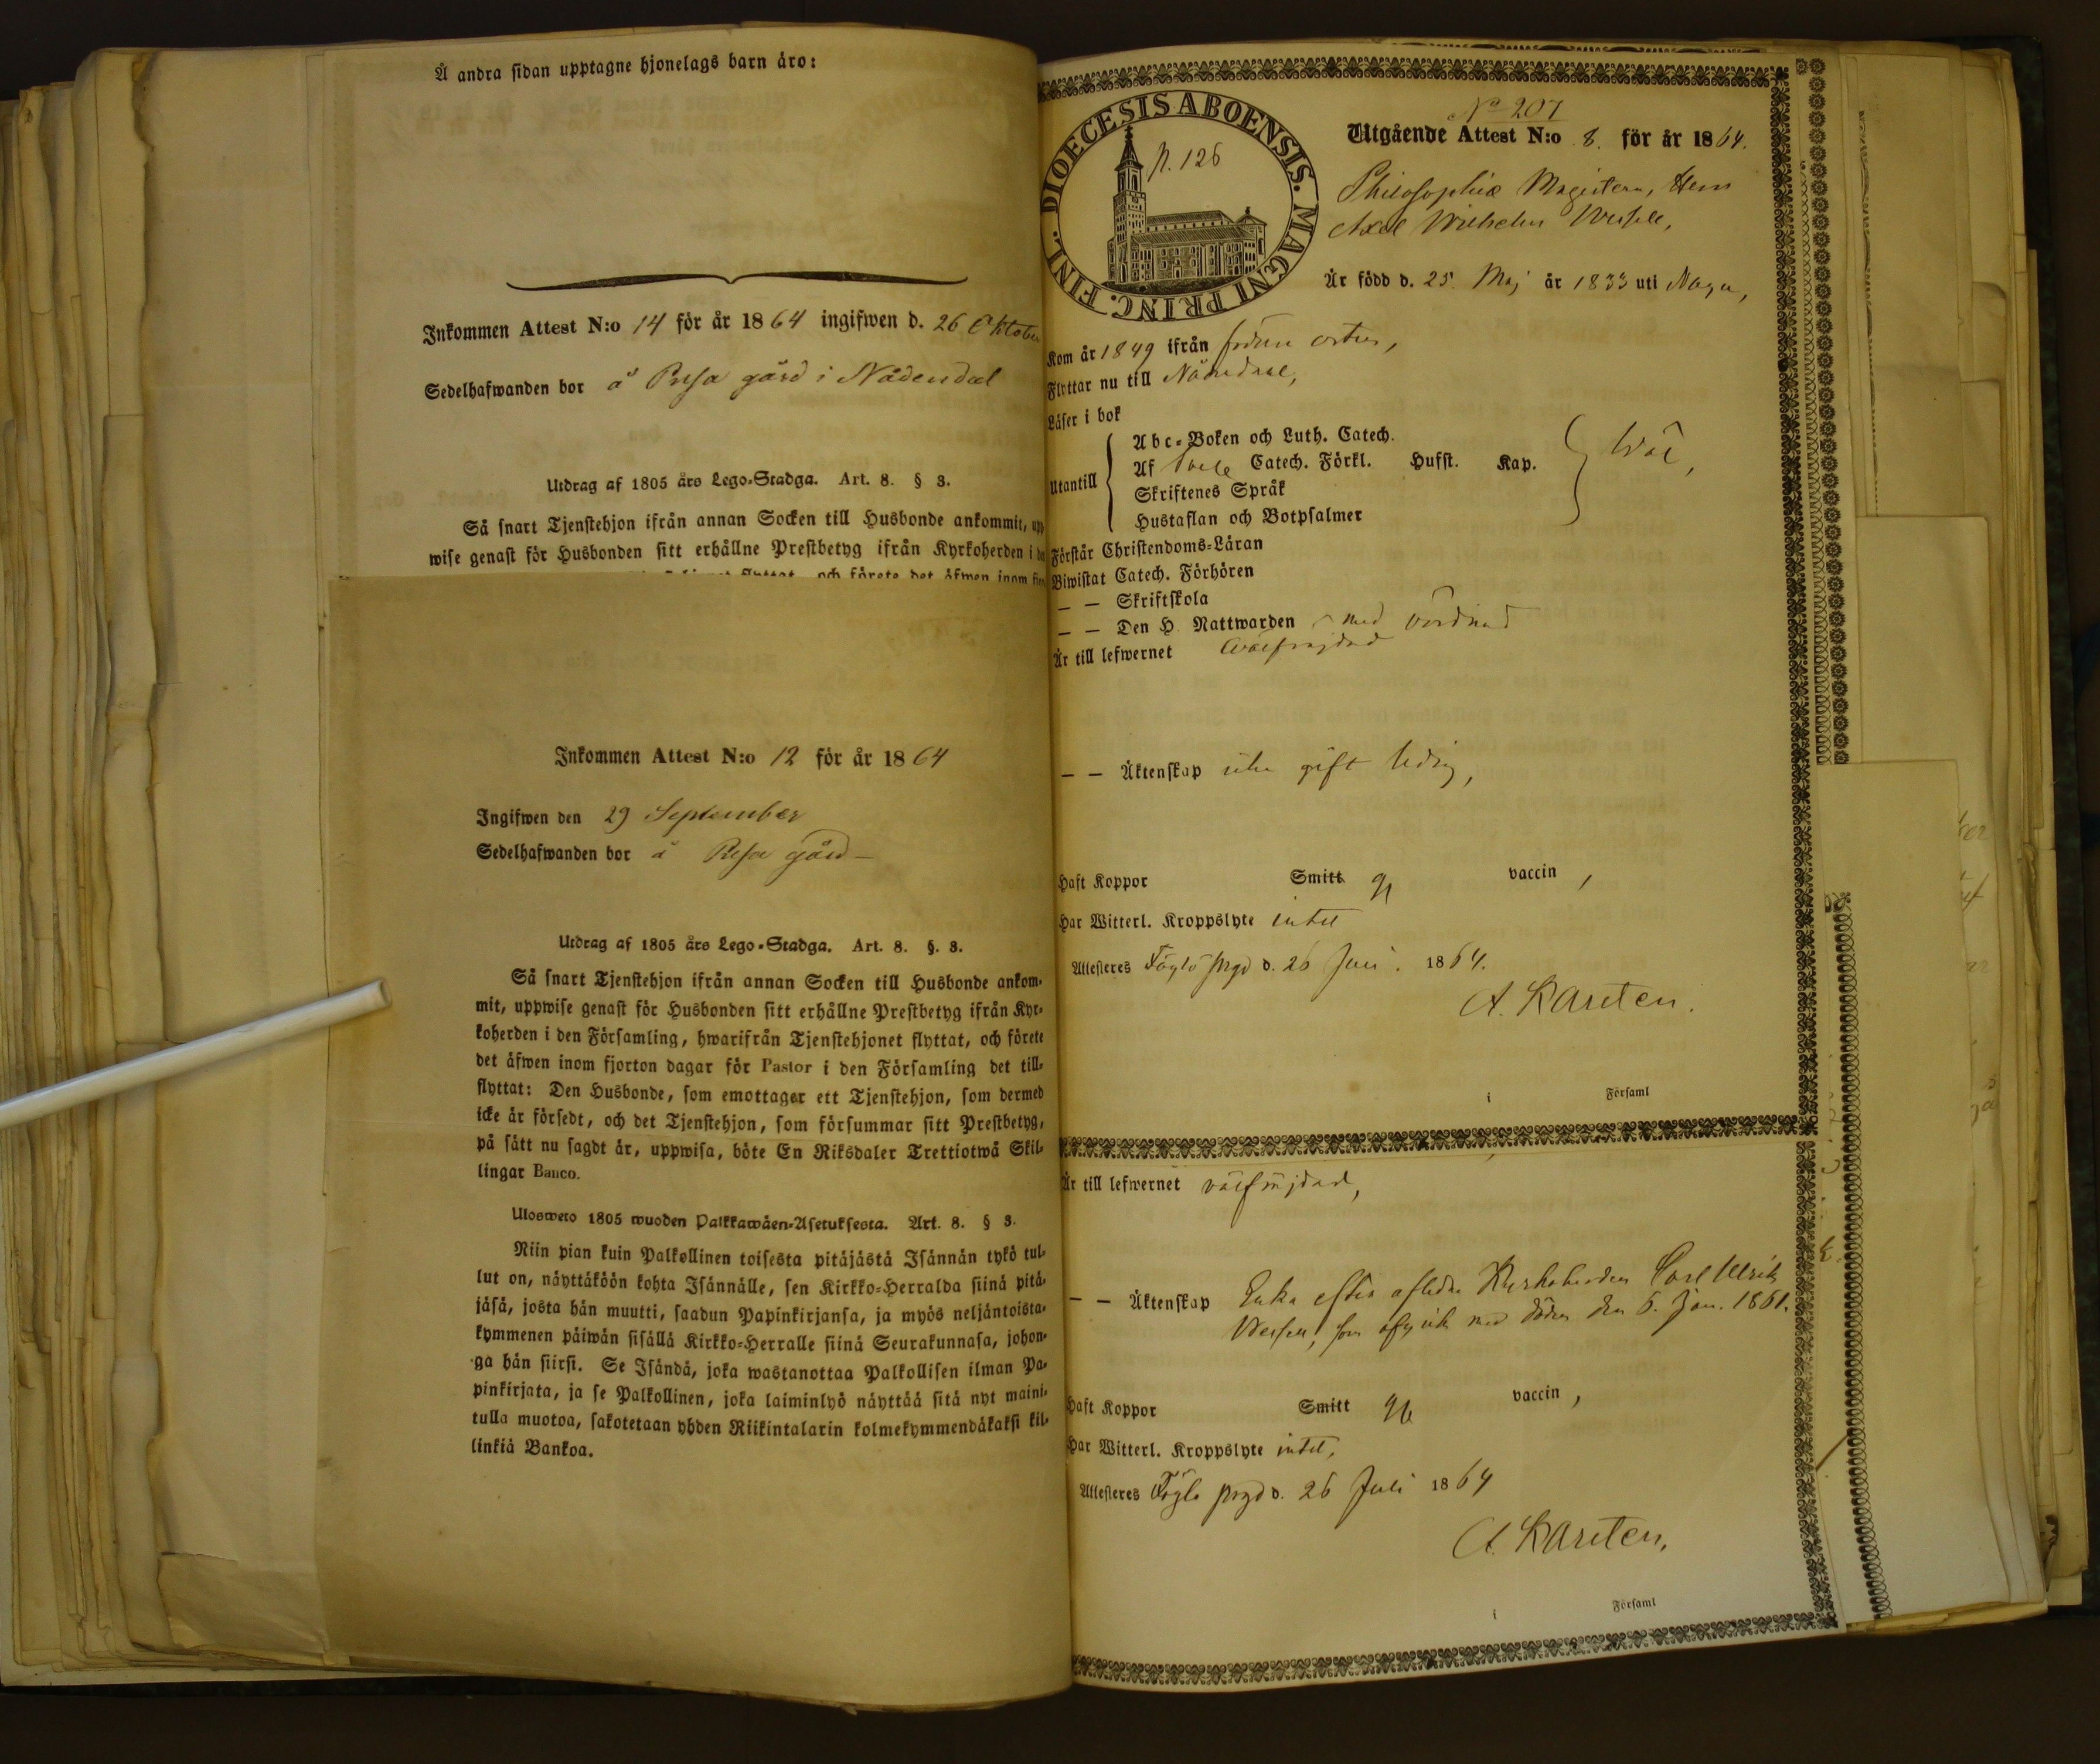 Å andra sidan upptagne hjonelags barn äro:
Inkommen Attest N:o 14 för år 1864 ingifwen d. 26 Oktober
Sedelhafwanden bor å gård i Nådendal
Utdrag af 1805 års Lego-Stadga. Art. 8. § 3.
Så snart Tjenstehjon ifrån annan Socken till Husbonde ankommit, upp
wise genast för Husbonden sitt erhållne Prestbetyg ifrån Kyrkoherden i
flyttat, och förete det äfwen inom
Inkommen Attest N:o 12 för år 1864
Ingifwen den 29 September
Sedelhafwanden bor å gård
Utdrag af 1805 års Lego-Stadga. Art. 8. §. 3.
Så snart Tjenstehjon ifrån annan Socken till Husbonde ankom-
mit, uppwise genast för Husbonden sitt erhållne Prestbetyg ifrån Kyr-
koherden i den Församling, hwarifrån Tjenstehjonet flyttat, och förete
det äfwen inom fjorton dagar för Pastor i den Församling det till-
flyttat: Den Husbonde, som emottager ett Tjenstehjon, som dermed
icke är försedt, och det Tjenstehjon, som försummar sitt Prestbetyg,
på sätt nu sagdt är, uppwisa, böte En Riksdaler Trettiotwå Skil-
lingar Banco.
Ulosweto 1805 wuoden Palkkawäen-Asetuksesta. Art. 8. § 3.
Niin pian kuin Palkollinen toisesta pitäjästä Isännän tykö tul-
lut on, näyttäköön kohta Isännälle, sen Kirkko-Herralda siinä pitä-
jäsä, josta hän muutti, saadun Papinkirjansa, ja myös neljäntoista-
kymmenen päiwän sisällä Kirkko-Herralle siinä Seurakunnasa, johon-
ga hän siirsi. Se Isändä, joka wastanottaa Palkollisen ilman Pa-
pinkirjata, ja se Palkollinen, joka laiminlyö näyttää sitä nyt maini-
tulla muotoa, sakotetaan yhden Riikintalarin kolmekymmendäkaksi kil-
linkiä Bankoa.
DIOECESIS ABOENSIS. MAGNI PRINC. FINL.
p. 126
No 207
Utgående Attest N:o 8. för år 1864.
Philosophiæ Magistern, Herr
Axel Wilhelm
Är född d. 25. Maj år 1833 uti Nagu,
Kom år 1849 ifrån orten,
Flyttar nu till Nådendal,
Läser i bok
Utantill
Abc-Boken och Luth. Catech.
Af Catech. Förkl. Hufst. Kap.
Skriftenes Språk
Hustaflan och Botpsalmer
Wäl,
Förstår Christendoms-Läran
Biwistat Catech. Förhören
— — Skriftskola
— — Den H. Nattwarden med vördnad
Är till lefwernet wälfrejdad
— — Äktenskap icke gift ledig,
Haft Koppor Smitt vaccin,
Har Witterl. Kroppslyte intet
Attesteres Föglö prgd d. 26 Juli. 1864.
A. Karsten.
i Församl
Är till lefwernet välfrejdad,
— — Äktenskap Enka efter aflidne Kyrkoherden Carl Ulrik
som afgick med döden den 6. Jan. 1861.
Haft Koppor Smitt vaccin,
Har Witterl. Kroppslyte intet,
Attesteres Föglö prgd d. 26 Juli 1864
A. Karsten.
i Församl